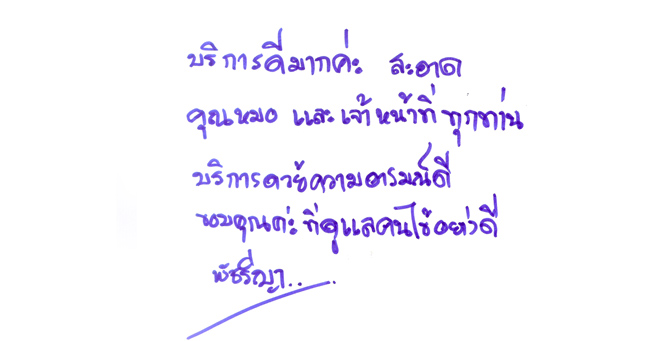 บริการดีมากค่ะ สะอาด
คุณหมอ และเจ้าหน้าที่ทุกท่าน
บริการด้วยความอารมณ์ดี
ขอบคุณค่ะที่ดูแลคนไข้อย่างดี
พัชรีญา.....